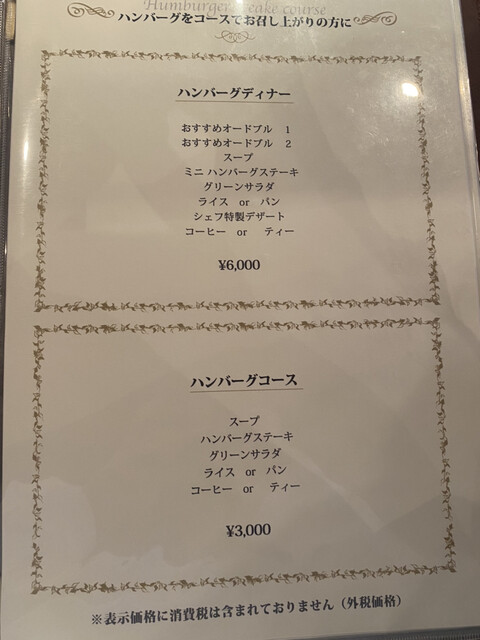 Humburger cake course
ハンバーグをコースでお召し上がりの方に
ハンバーグディナー
おすすめオードブル 1
おすすめオードブル 2
スープ
ミニ ハンバーグステーキ
グリーンサラダ
ライス or パン
シェフ特製デザート
コーヒー or ティー
¥6,000
ハンバーグコース
スープ
ハンバーグステーキ
グリーンサラダ
ライス or パン
コーヒー or ティー
¥3,000
※表示価格に消費税は含まれておりません（外税価格）